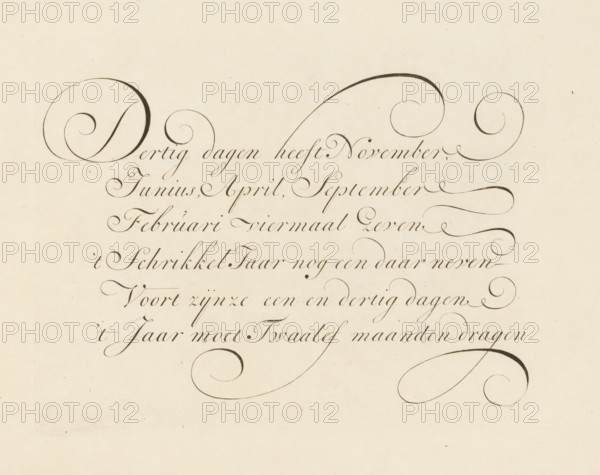 Dertig dagen heeft November,
Junius, April, September
Februari viermaal Zeven
't Schrikkel Jaar nog een daar neven
Voort zynze een en dertig dagen
't Jaar moet Twaalef maanden dragen
PHOTO 12